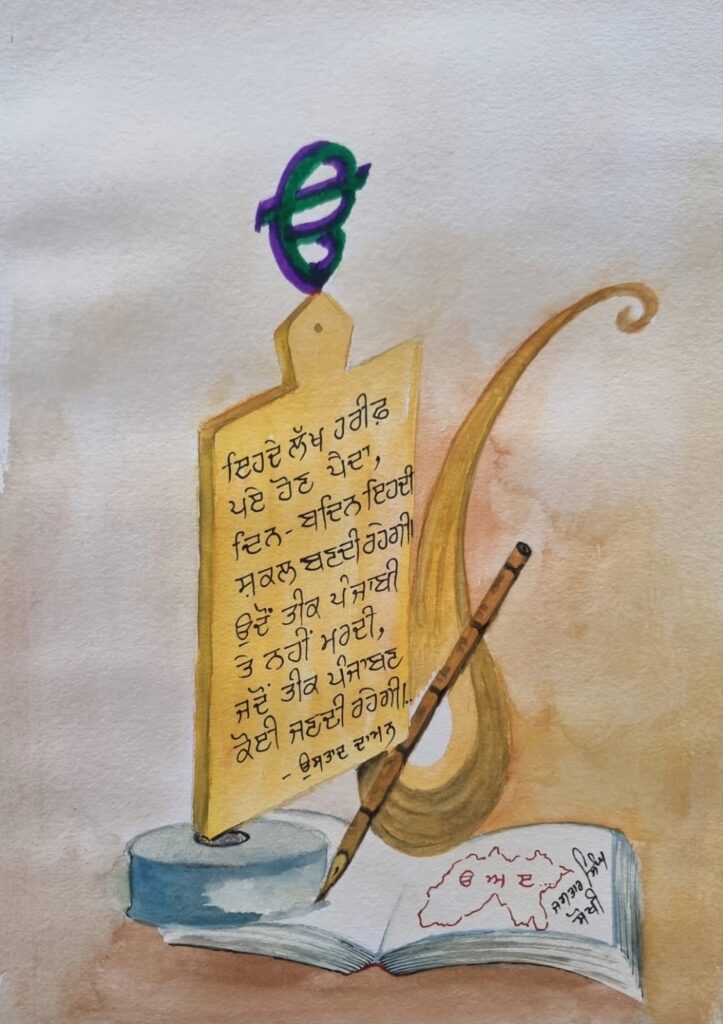 ਇਹਦੇ ਲੱਖ ਹਰੀਫ਼
ਪਏ ਹੋਣ ਪੈਦਾ,
ਦਿਨ-ਬਦਿਨ ਇਹਦੀ
ਸ਼ਕਲ ਬਣਦੀ ਰਹੇਗੀ।
ਉਦੋਂ ਤੀਕ ਪੰਜਾਬੀ
ਤੇ ਨਹੀਂ ਮਰਦੀ,
ਜਦੋਂ ਤੀਕ ਪੰਜਾਬਣ
ਕੋਈ ਜਣਦੀ ਰਹੇਗੀ।..
- ਉਸਤਾਦ ਦਾਮਨ
ੳ ਅ ੲ
ਜਗਤਾਰ ਸਿੰਘ
ਸੋਖੀ